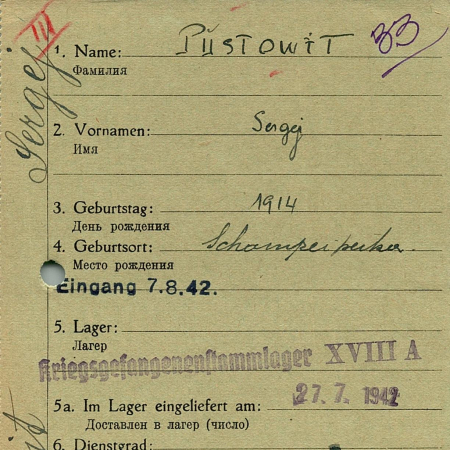 III
1. Name: PÜSTOWIT 33
Фамилия
Sergej
2. Vornamen: Sergej
Имя
3. Geburtstag: 1914
День рождения
4. Geburtsort:
Место рождения
Eingang 7.8.42.
5. Lager:
Лагерь
Kriegsgefangenenstammlager XVIII A
27. 7. 1942
5a. Im Lager eingeliefert am:
Доставлен в лагерь (число)
6. Dienstgrad: